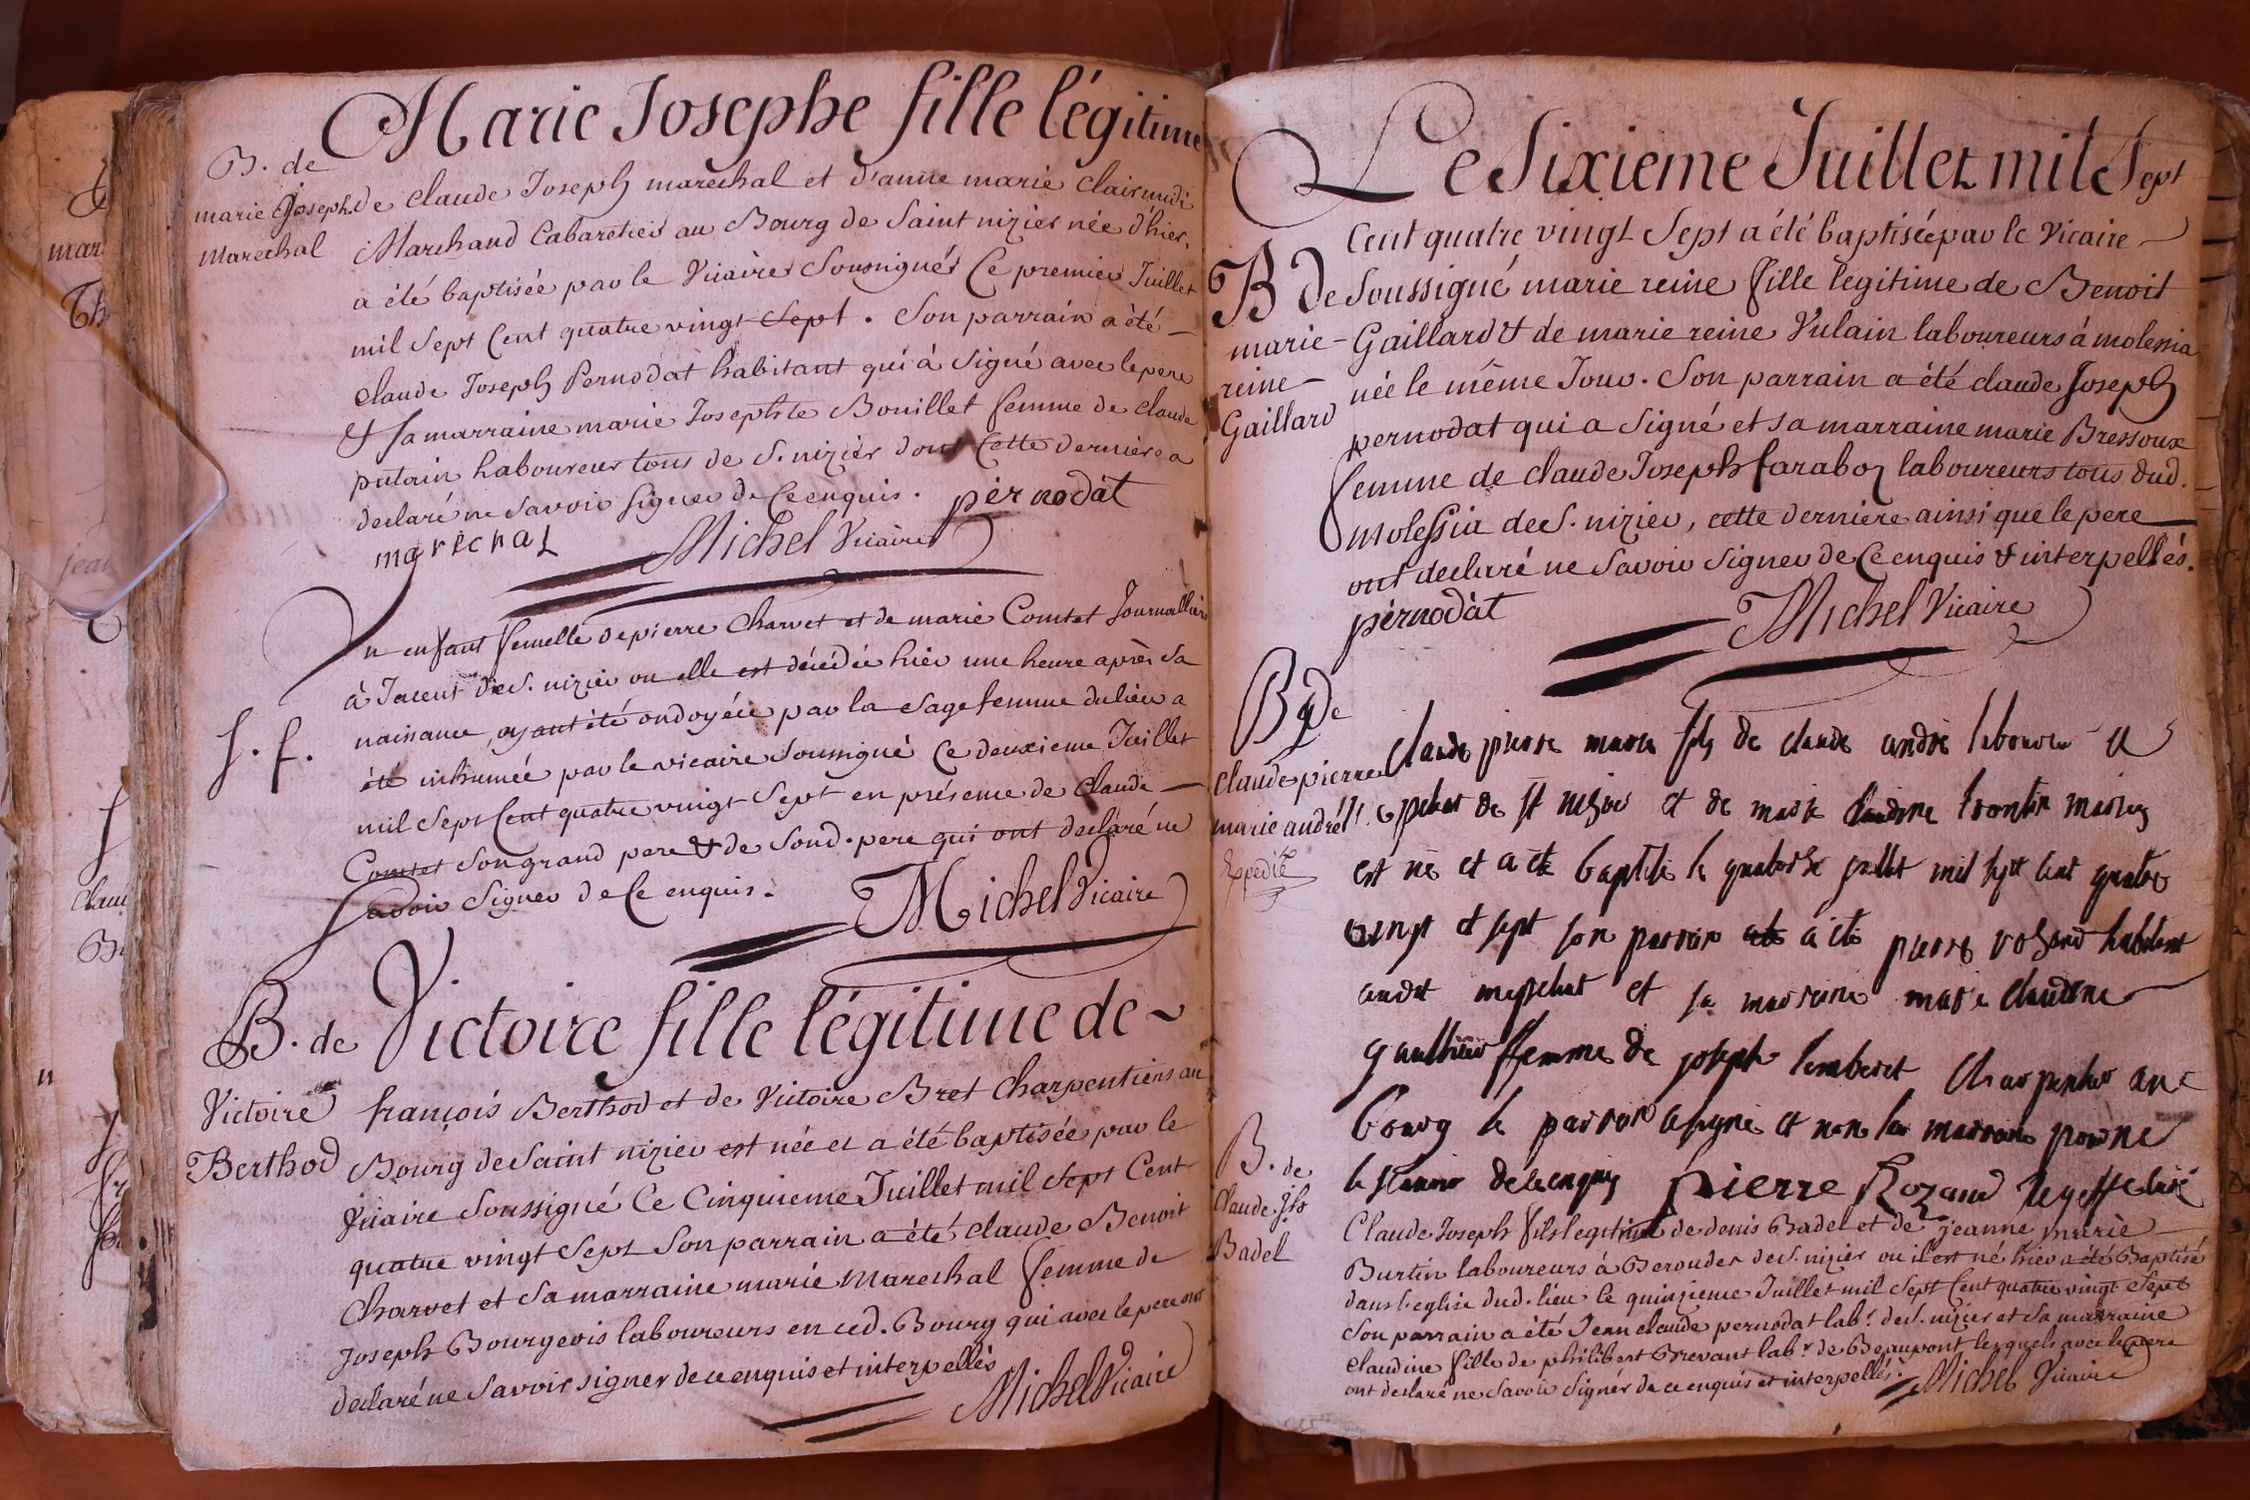 Marie Josephe fille légitime
B. de
marie Joseph
Marechal
de claude Joseph marechal et d'anne marie clairmidi
Marchand Cabaretier au Bourg de Saint nizier née d'hier,
a été baptisée par le Vicaire Soussigné Ce premier Juillet
mil Sept Cent quatre vingt Sept. Son parrain a été
claude Joseph Pernodat habitant qui à Signé avec le pere
& sa marraine marie Josephte Bouillet femme de claude
putain laboureur tous de S. nizier dont Cette derniere a
declaré ne Savoir signer de Ce enquis. pernodat
marechal Michel Vicaire
Un enfant femelle de pierre Charvet et de marie Comtet Journalliers
à Jacent de S. nizier ou elle est décédée hier une heure après sa
S. f.
naissance, ayant été ondoyée par la Sage femme du lieu a
été inhumée par le vicaire Soussigné Ce deuxieme Juillet
mil Sept Cent quatre vingt Sept en présence de Claude
Comtet Son grand pere & de Sond. pere qui ont declaré ne
savoir Signer de Ce enquis. Michel Vicaire
B. de
Victoire
Berthod
Victoire fille légitime de
françois Berthod et de Victoire Bret Charpentiers au
Bourg de Saint nizier est née et a été baptisée par le
Vicaire Soussigné Ce Cinquieme Juillet mil Sept Cent
quatre vingt Sept Son parrain a été claude Benoit
Charvet et sa marraine marie Mareshal femme de
Joseph Bourgeois laboureurs en ced. Bourg qui avec le pere ont
declaré ne Savoir signer de ce enquis et interpellés
Michel Vicaire
Le Sixieme Juillet mil Sept
Cent quatre vingt Sept a été baptisée par le Vicaire
B de
marie
reine
Gaillard
Soussigné marie reine fille legitime de Benoit
Gaillard & de marie reine Vulain laboureurs á molessia
née le même Jour. Son parrain a été claude Joseph
pernodat qui a Signé et sa marraine marie Bressoux
femme de claude Joseph faraboz laboureurs tous dud.
molessia de S. nizier, cette derniere ainsi que le pere
ont declaré ne Savoir signer de Ce enquis & interpellés.
pernodat Michel Vicaire
B de
claude pierre
marie andré
Expedié
Claude pierre marie fils de claude andré laboureur a
de st nizier et de marie claudine trontin mariez
est né et a été baptisé le quatorze juillet mil sept cent quatre
vingt et sept son parrain a été pierre rozand habitant
audit et sa marraine marie claudine
gauthier femme de joseph lambert charpentier au
bourg le parrain a signé et non la marraine pour ne
le scavoir de ce enquis Pierre Rozand
B. de
Claude Jph
Badel
Claude Joseph fils legitime de denis Badel et de jeanne marie
Burtin laboureurs à Berouder de S. nizier ou il est né hier a été Baptisé
dans l'eglise dud. lieu le quinzieme Juillet mil Sept Cent quatre vingt Sept
Son parrain a été Jean claude pernodat labr. de S. nizier et Sa marraine
claudine fille de philibert Brevant labr. de Beaupont lesquels avec le pere
ont declaré ne Savoir Signer de ce enquis et interpellés. Michel Vicaire